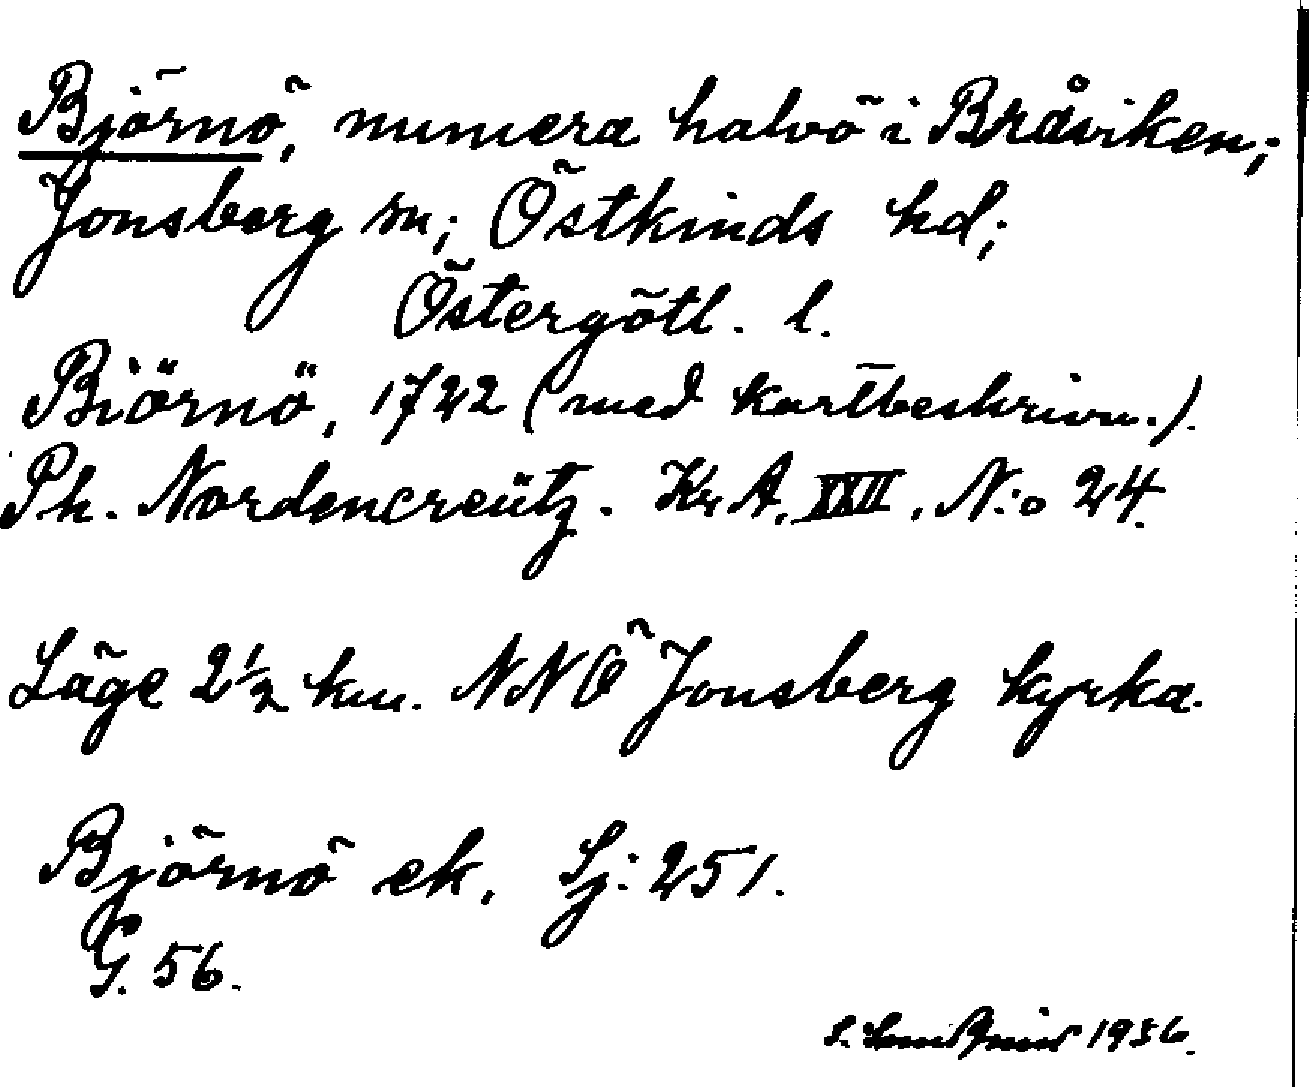 Björnö, numera halvö i Bråviken;
Jonsberg sn; Östkinds hd;
Östergötl. l.
Biörnö, 1722 (med kartbeskrivn.).
Ph. Nordencreütz. Kr A. XXII. N:o 24.
Läge 2 1/2 km. NNÖ Jonsberg kyrka.
Björnö ek. Sj: 251.
G. 56.
S. 1936.